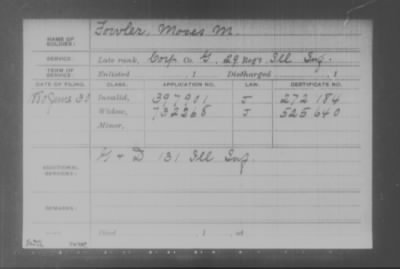 NAME OF SOLDIER: Fowler, Moses M.
SERVICE: Late rank, Corp. Co. G, 29 Reg't Ill Inf.
TERM OF SERVICE: Enlisted , 1 Discharged , 1
DATE OF FILING. CLASS. APPLICATION NO. LAW. CERTIFICATE NO.
1880 June 30 Invalid, 397901 J 272184
Widow, 732268 J 525640
Minor,
ADDITIONAL SERVICES: G & D 131 Ill Inf.
REMARKS:
Died , 1 , at